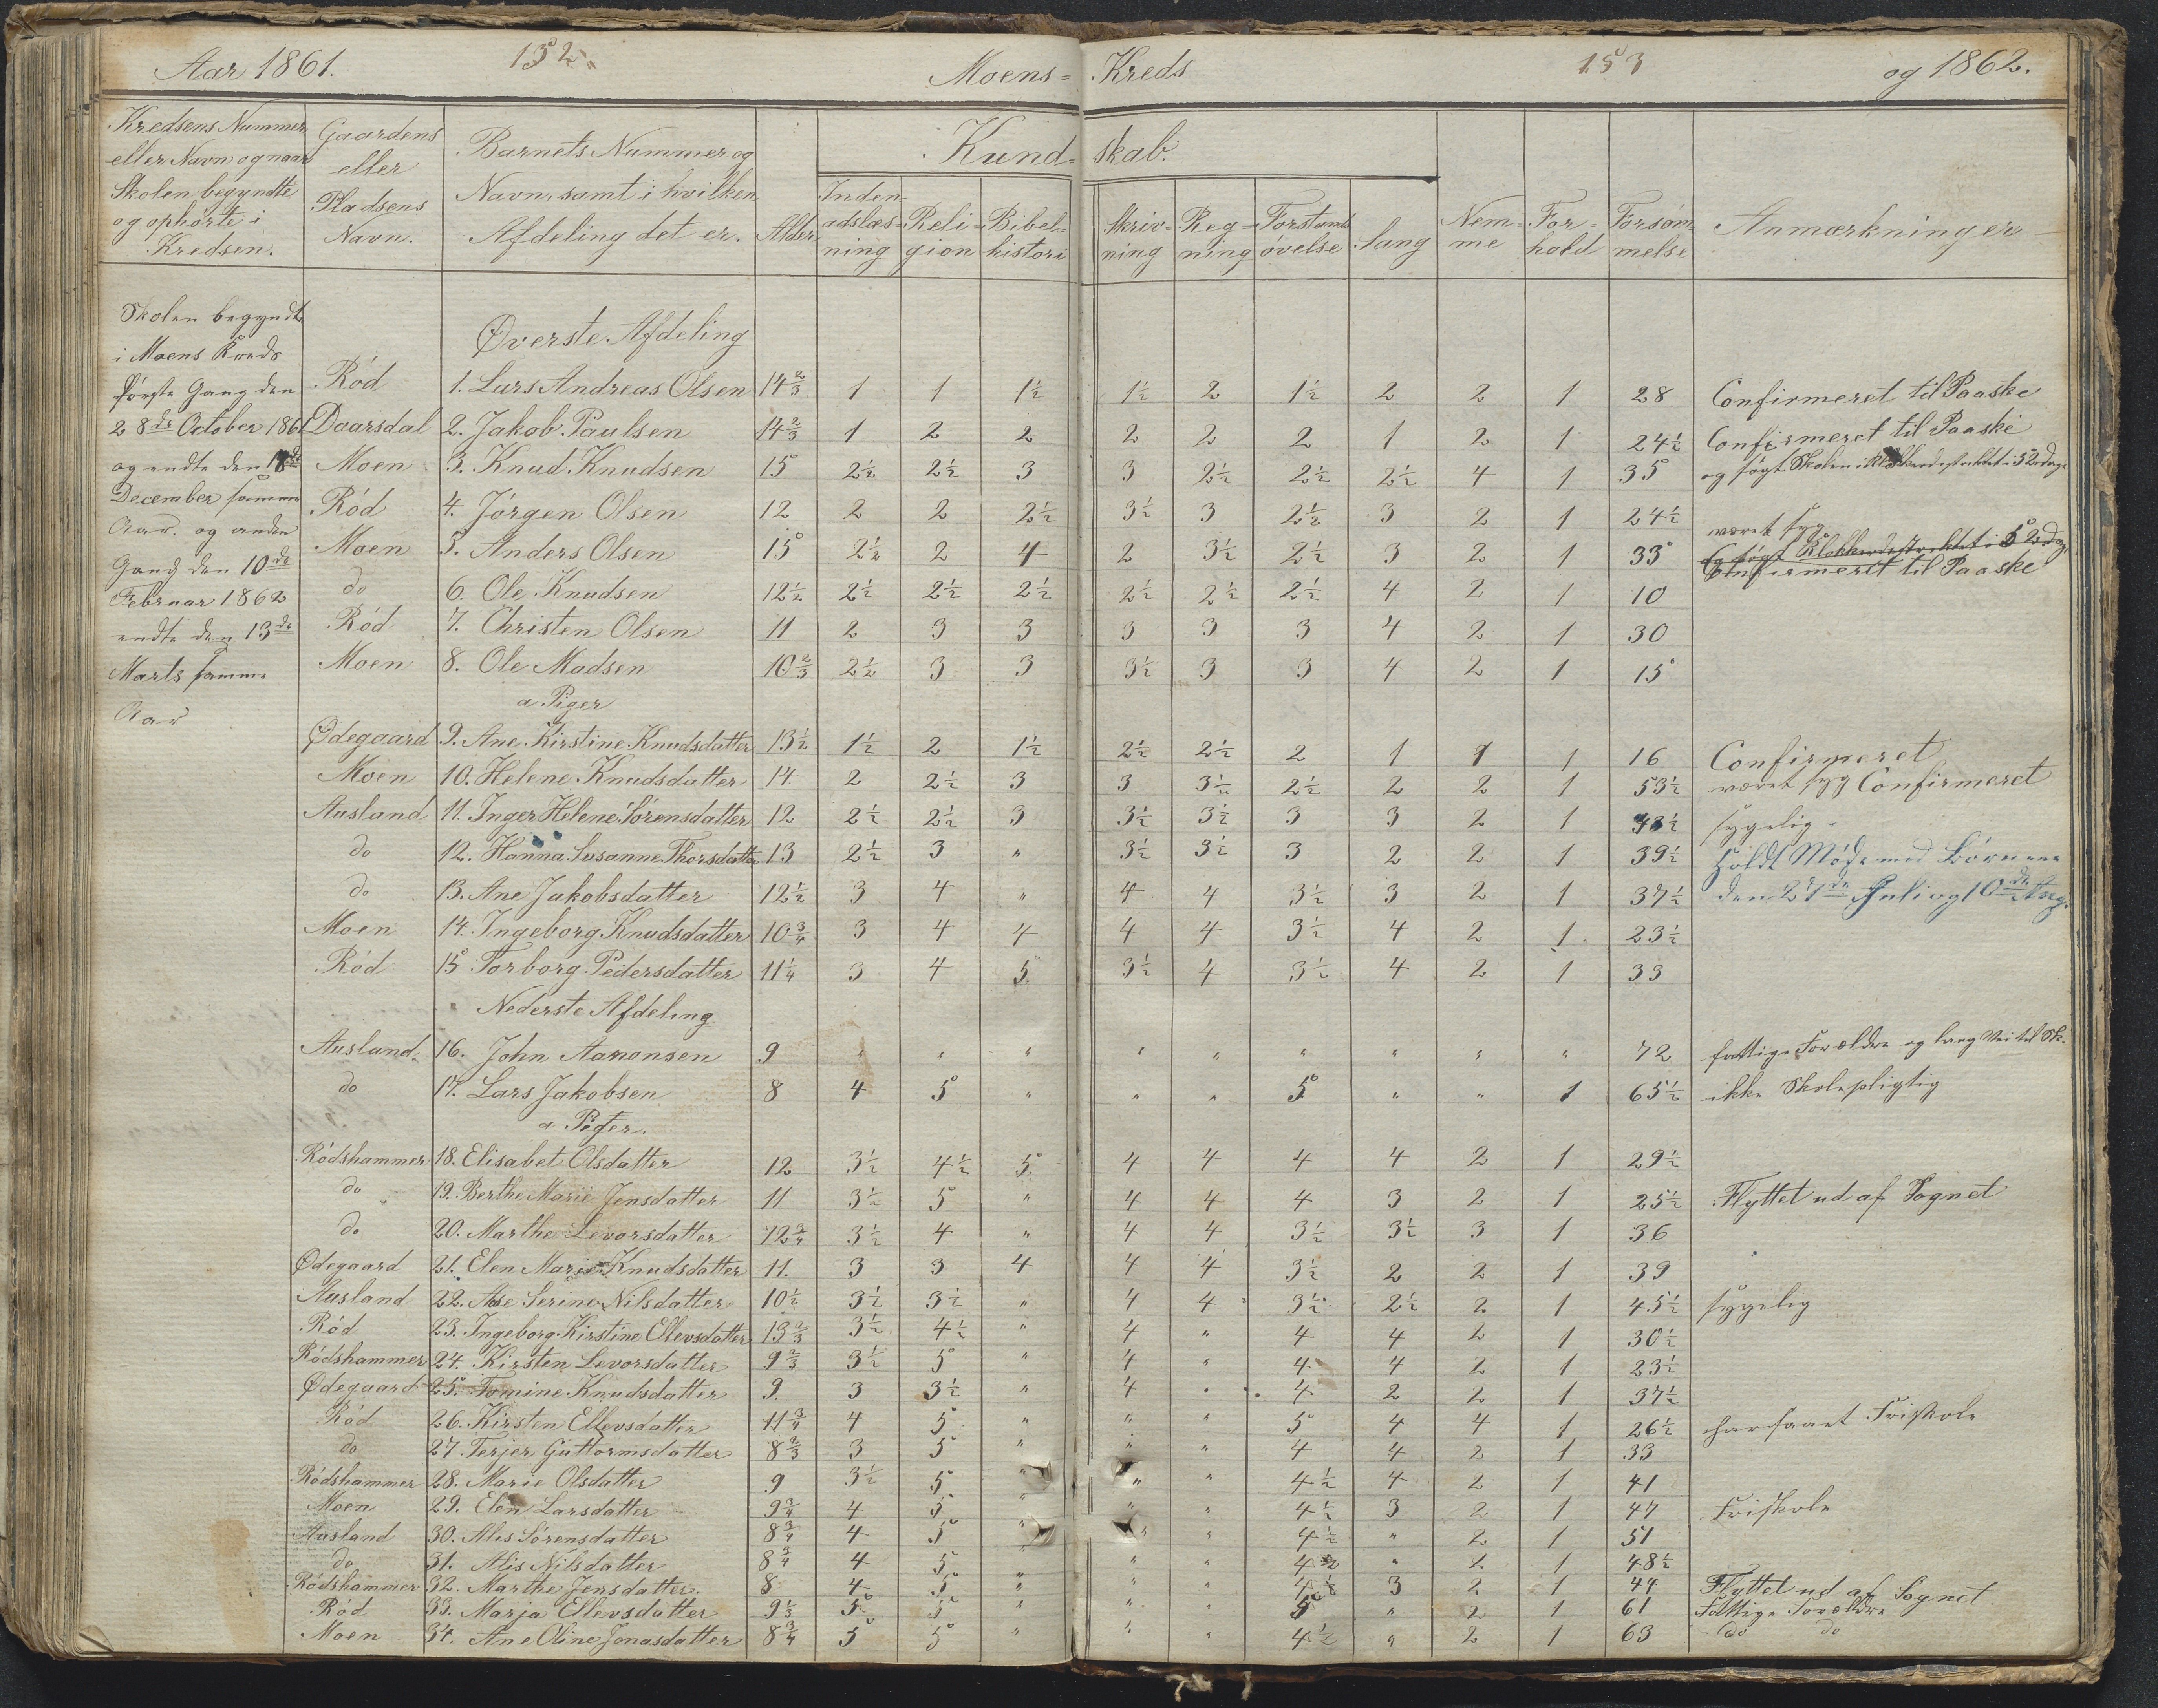 Aar 1861. 152. Moens= Kreds 153 og 1862.
Kredsens Nummer eller Navn og naar Skolen begyndte og ophørte i Kredsen.
Gaardens eller Pladsens Navn.
Barnets Nummer og Navn, samt i hvilken Afdeling det er.
Alder
Kund= skab.
Inden adslæs= ning
Reli= gion
Bibel= histori
Skriv= ning
Reg= ning
Forstands øvelse
Sang
Nem= me
For= hold
Forsøm melse
Anmærkninger
Skolen begyndte
i Moens Kreds
første Gang den
28de October 1861
og endte den
December samme
Aar. og anden
Gang den 10de
Februar 1862
endte den 13de
Marts samme
Aar
Øverste Afdeling
Röd 1. Lars Andreas Olsen 14 2/3 1 1 1½ 1½ 2 1½ 2 2 1 28 Confirmeret til Paaske
Daarsdal 2. Jakob Paulsen 14 2/3 1 2 2 2 2 2 1 2 1 24½ Confirmeret til Paaske
Moen 3. Knud Knudsen 15 2½ 2½ 3 3 2½ 2½ 2½ 4 1 35 og søgt Skolen i
Röd 4. Jörgen Olsen 12 2 2 2½ 3½ 3 2½ 3 2 1 24½ været syg
Moen 5. Anders Olsen 15 2½ 2 4 2 3½ 2½ 3 2 1 33 og søgt Klokkerdistriktet i 5 Confirmeret til Paaske
do 6. Ole Knudsen 12½ 2½ 2½ 2½ 2½ 2½ 2½ 4 2 1 10
Röd 7. Christen Olsen 11 2 3 3 3 3 3 4 2 1 30
Moen 8. Ole Madsen 10 2/3 2½ 3 3 3½ 3 3 4 2 1 15
a Piger
Ødegaard 9. Ane Kirstine Knudsdatter 13½ 1½ 2 1½ 2½ 2½ 2 1 1 1 16 Confirmeret
Moen 10. Helene Knudsdatter 14 2 2½ 3 3 3½ 2½ 2 2 1 53½ været syg Confirmeret
Ausland 11. Inger Helene Sörensdatter 12 2½ 2½ 3 3½ 3½ 3 3 2 1 48½ sygelig
do 12. Hanna Susanne Thorsdatter 13 2½ 3 " 3½ 3½ 3 2 2 1 39½ Holdt Møde med Børnene
do 13. Ane Jakobsdatter 12½ 3 4 " 4 4 3½ 3 2 1 37½ den 21de Juli og 10de Aug.
Moen 14. Ingeborg Knudsdatter 10¾ 3 4 4 4 4 3½ 4 2 1 23½
Röd 15 Torborg Pedersdatter 11¼ 3 4 5 3½ 4 3½ 4 2 1 33
Nederste Afdeling
Ausland 16. John Aanonsen 9 " " " " " " " " " 72 fattige Forældre og lang Vei til Sk.
do 17. Lars Jakobsen 8 4 5 " " " 5 " " 1 65½ ikke Skolepligtig
a Piger.
Rödshammer 18. Elisabet Olsdatter 12 3½ 4½ 5 4 4 4 4 2 1 29½
do 19. Berthe Marie Jensdatter 11 3½ 5 " 4 4 4 3 2 1 25½ Flyttet ud af Sognet
do 20. Marthe Levorsdatter 12¾ 3½ 4 " 4 4 3½ 3½ 3 1 36
Ødegaard 21. Elen Marie Knudsdatter 11. 3 3 4 4 4 3½ 2 2 1 39
Ausland 22. Ase Serine Nilsdatter 10½ 3½ 3½ " 4 4 3½ 2½ 2 1 45½ sygelig
Röd 23. Ingeborg Kirstine Ellevsdatter 13 2/3 3½ 4½ " 4 " 4 4 2 1 30½
Rödshammer 24. Kirsten Levorsdatter 9 2/3 3½ 5 " 4 " 4 4 2 1 23½
Ødegaard 25. Tomine Knudsdatter 9. 3 3½ " 4 " 4 2 2 1 37½
Röd 26. Kirsten Ellevsdatter 11¾ 4 5 " " " 5 4 4 1 26½ har faaet Friskole
do 27. Terjer Guttormsdatter 8 2/3 3 5 " " " 4 4 2 1 33
Rödshammer 28. Marie Olsdatter 9 3½ 5 " " " 4½ 4 2 1 41
Moen 29. Elen Larsdatter 9¾ 4 5 " " " 4½ 3 2 1 47 Friskole
Ausland 30. Alis Sörensdatter 8¾ 4 5 " " " 4½ " 2 1 51
do 31. Alis Nilsdatter 8¾ 4 5 " " " 4½ " 2 1 48½
Rödshammer 32. Marthe Jensdatter. 8 4 5 " " " 4½ 3 2 1 44 Flyttet ud af Sognet
Röd 33. Marja Ellevsdatter 9⅓ 5 5 " " " 5 " 2 1 61 Fattige Forældre
Moen 34. Ane Oline Jonasdatter 8¾ 5 5 " " " 4½ " 2 1 63 do do